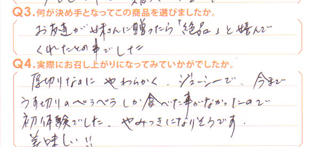 Q3.何が決め手となってこの商品を選びましたか。
お友達が妹さんに贈ったら「絶品」と喜んで
くれたとの事でした
Q4.実際にお召し上がりになってみていかがでしたか。
厚切りなのに やわらかく、ジューシーで、今まで
うす切りのぺらぺらしか食べた事がなかったので
初体験でした。やみつきになりそうです。
美味しい!!